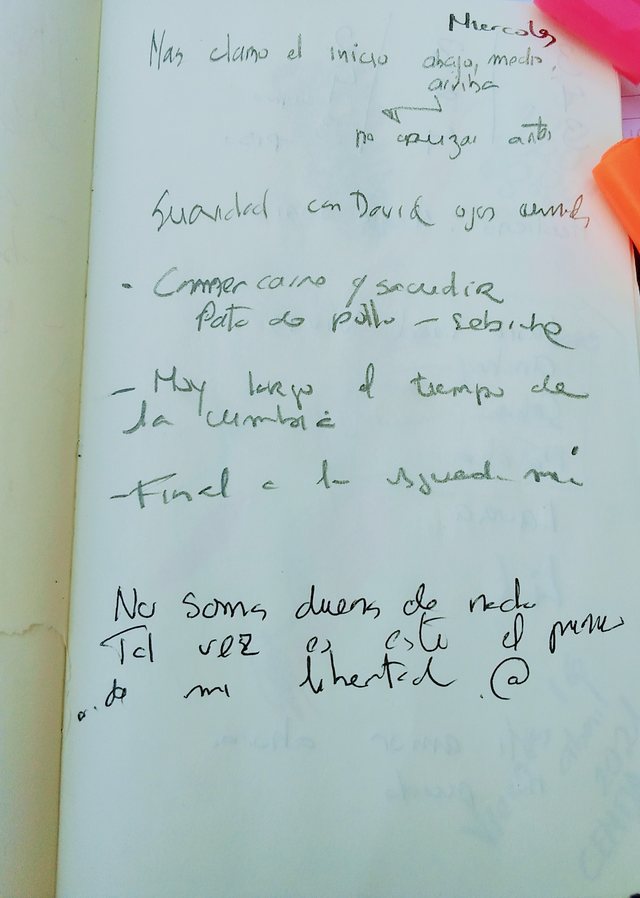 Miercoles
Mas claro el inicio abajo, medio,
arriba
no cruzar antes
Suavidad con David ojos
Comer carne y sacudir
Pata de pollo - Sebiche
- Muy largo el tiempo de
la cumbia
- Final a la
No somos dueños de nada
Tal vez es este el primer
de mi libertad @